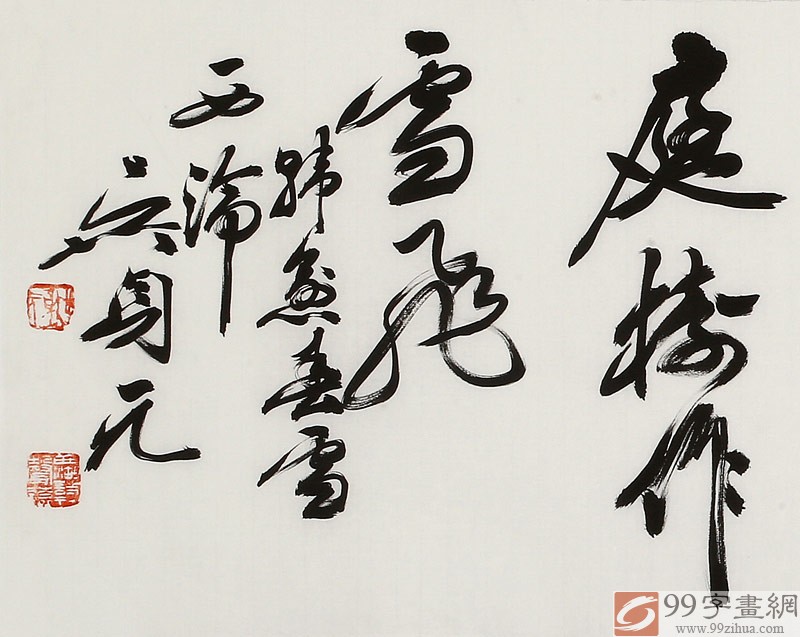 庭樹作
雪飛
韓愈春雪
西
吳身元
99字畫網
www.99zihua.com